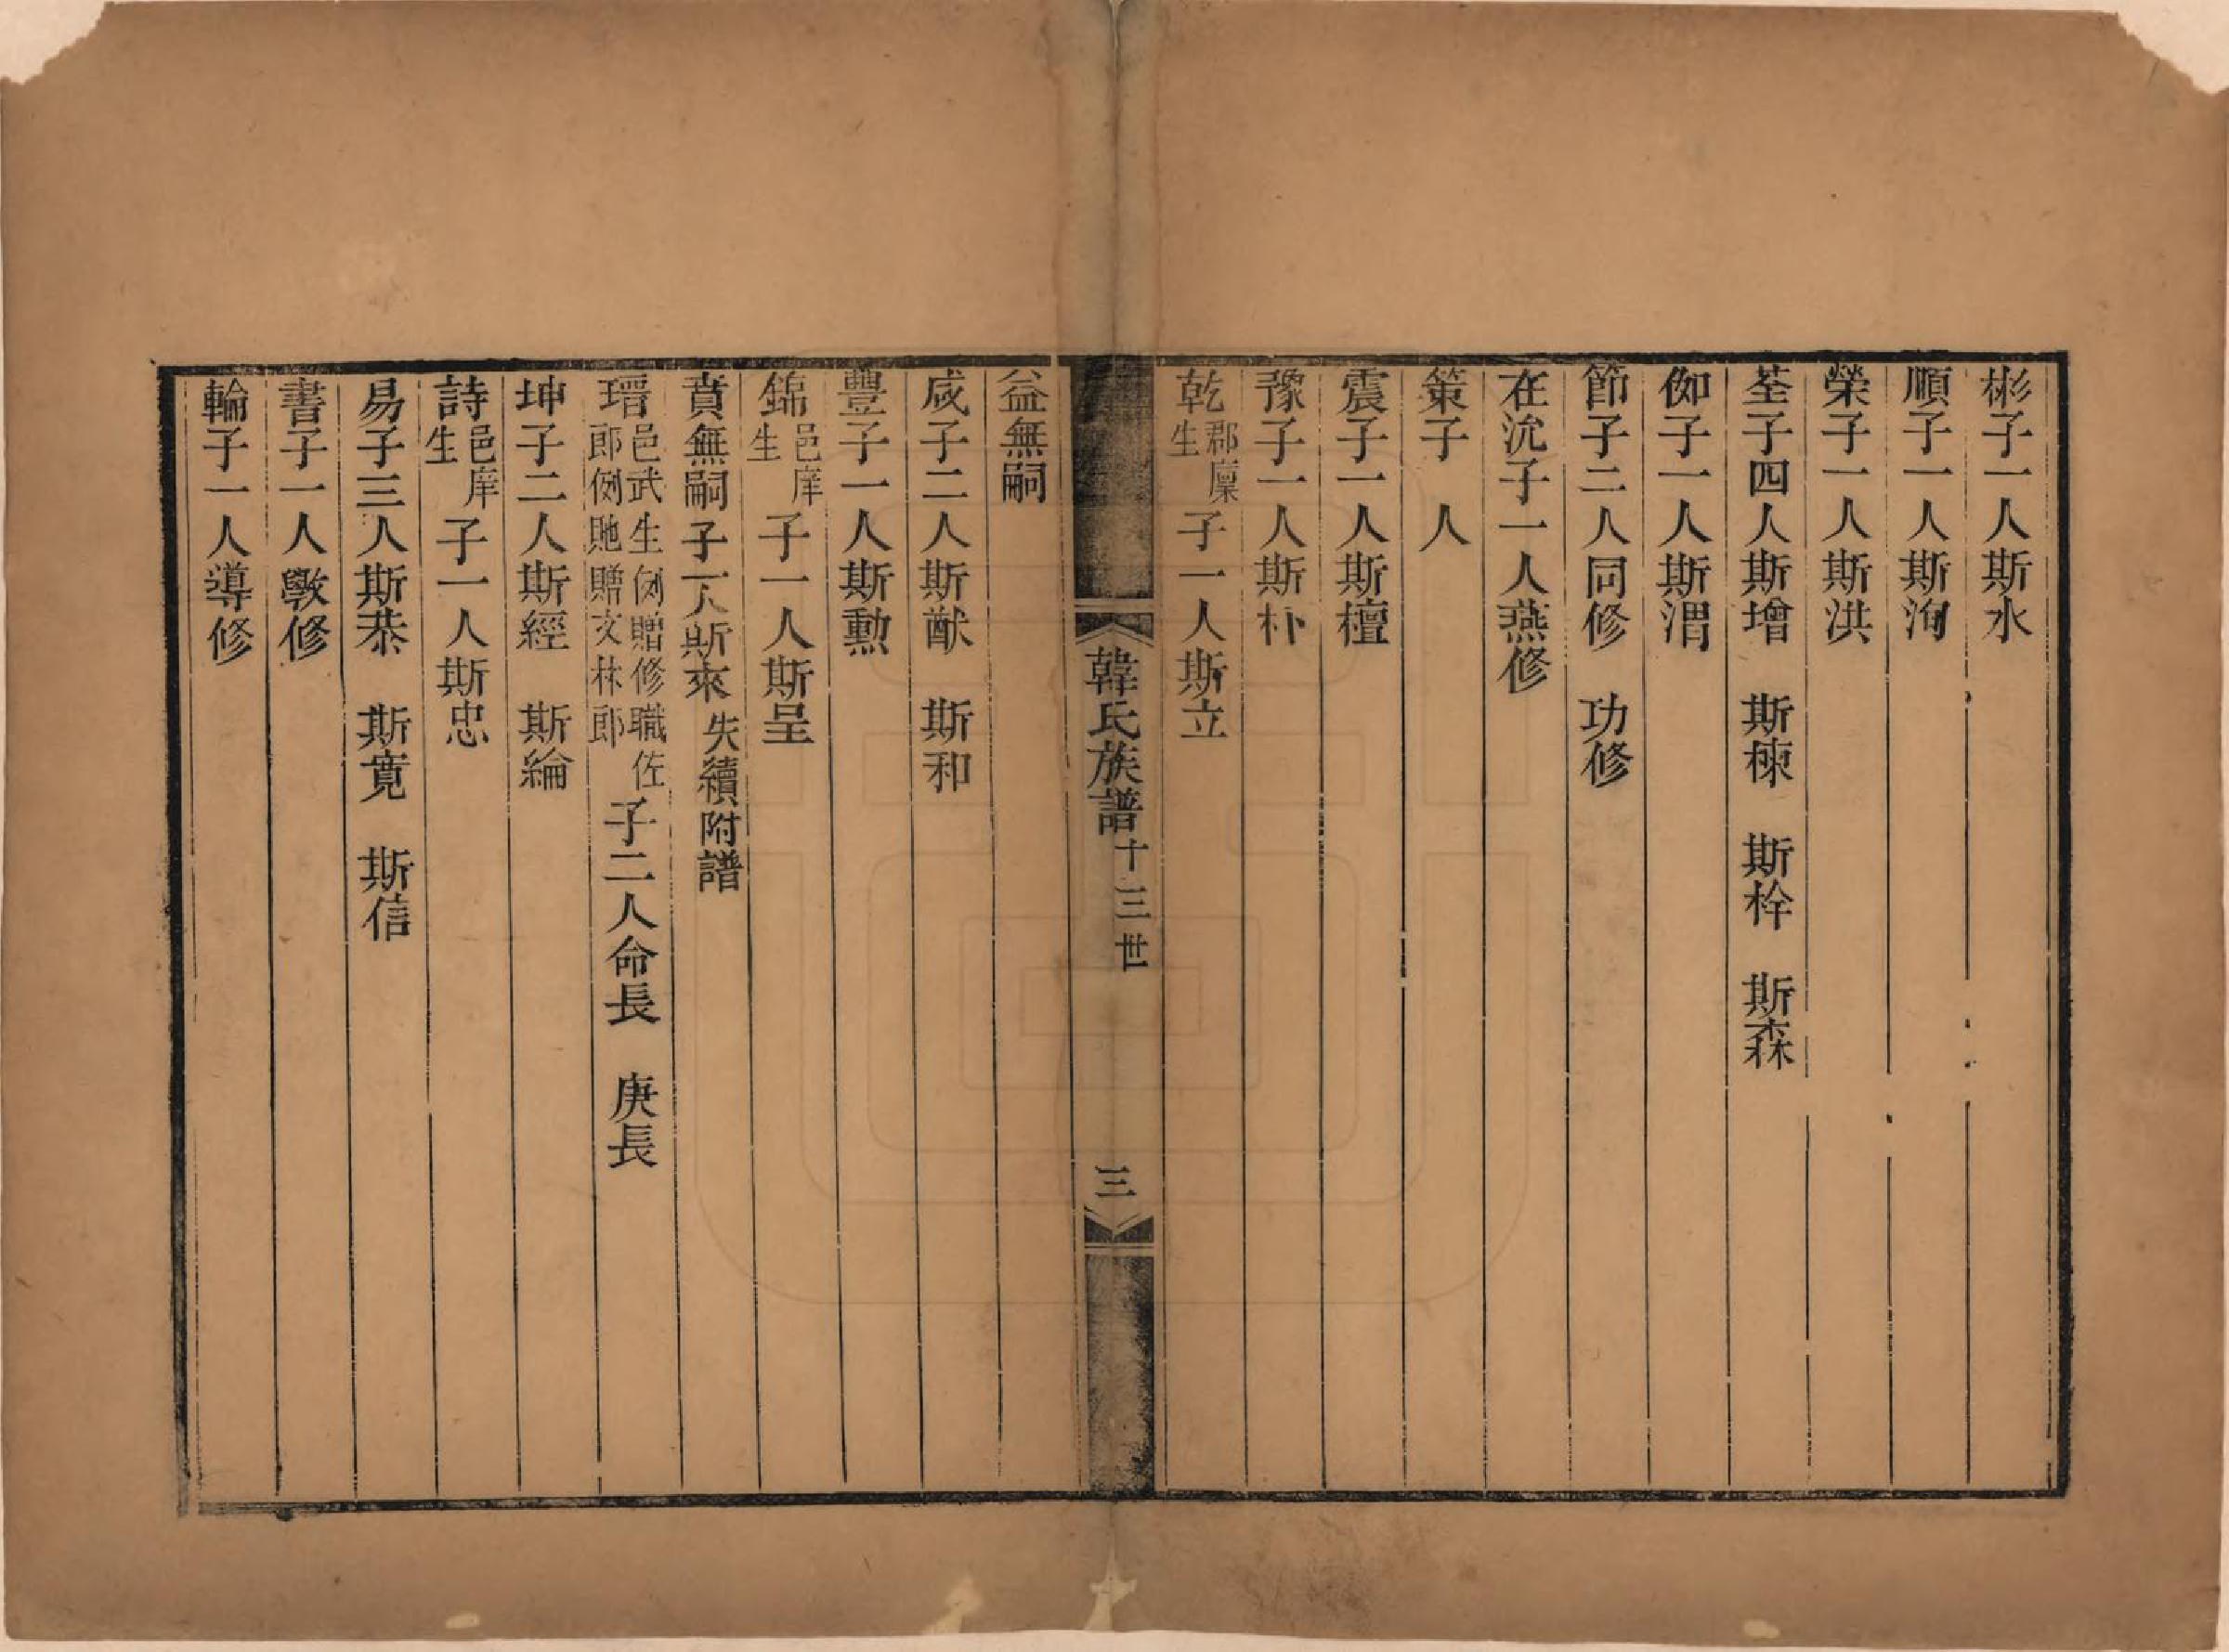 彬子一人斯水
順子一人斯洵
榮子一人斯洪
荃子四人斯增　斯楝　斯栓　斯森
伮子一人斯渭
節子二人同修　功修
在沇子一人燕修
策子　人
震子一人斯檀
豫子一人斯朴
乾郡廩生子一人斯立
韓氏族譜十三世　三
益無嗣
咸子二人斯猷　斯和
豐子一人斯勳
錦邑庠生子一人斯呈
賁無嗣子一人斯來失續附譜
瑨邑武生例贈修職佐郎例貤贈文林郎子二人命長　庚長
坤子二人斯經　斯綸
詩邑庠生子一人斯忠
易子三人斯恭　斯寬　斯信
書子一人斆修
輪子一人導修